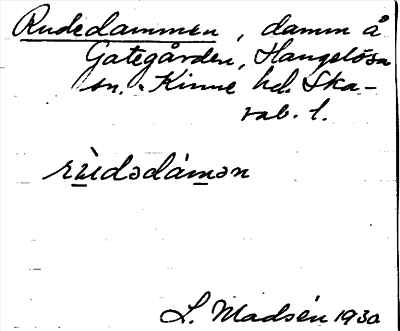 Rudedammen, damm å
Gategården, Hangelösa
sn. Kinne hd. Ska-
rab. l.
rùdədámən
L. Madsén 1930